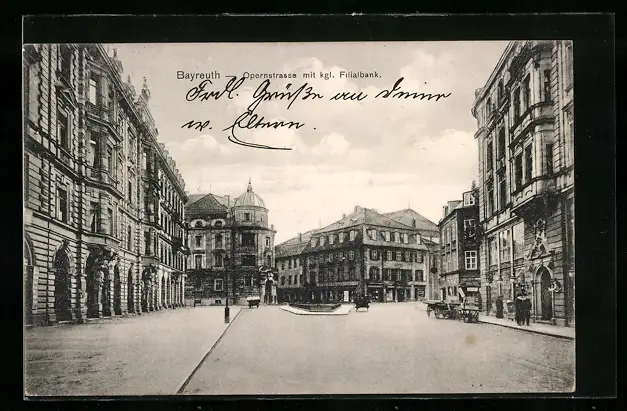 Bayreuth — Opernstrasse mit kgl. Filialbank.
Frdl. Grüße an Deine
w. Eltern.